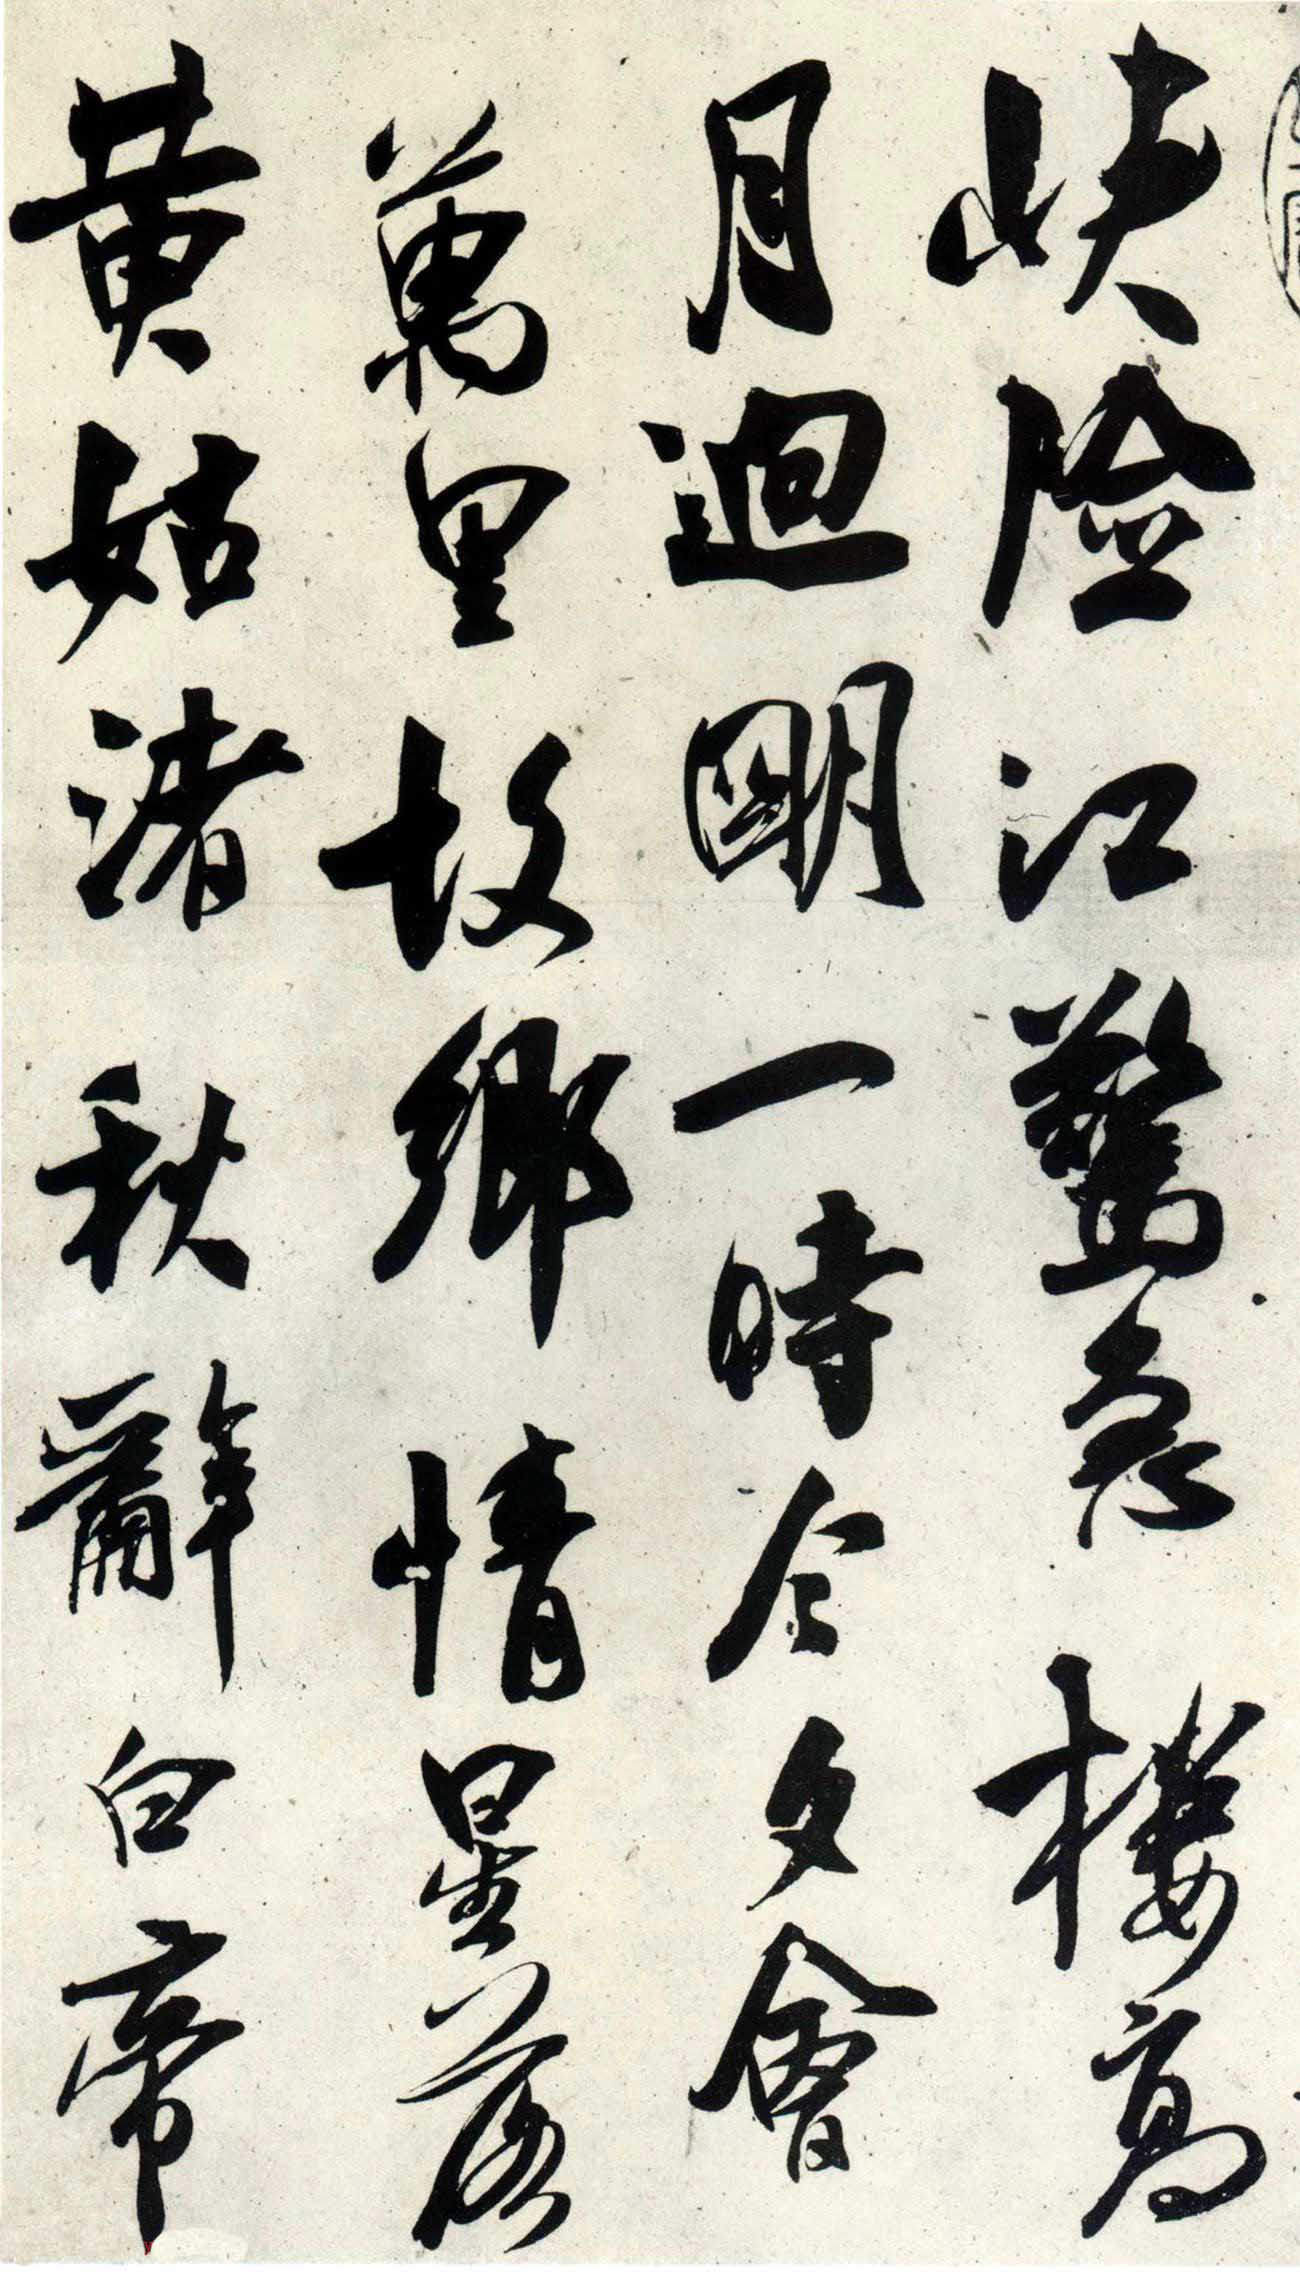 峽險江驚急樓高
月迥明一時今夕會
萬里故鄉情星落
黃姑渚秋辭白帝